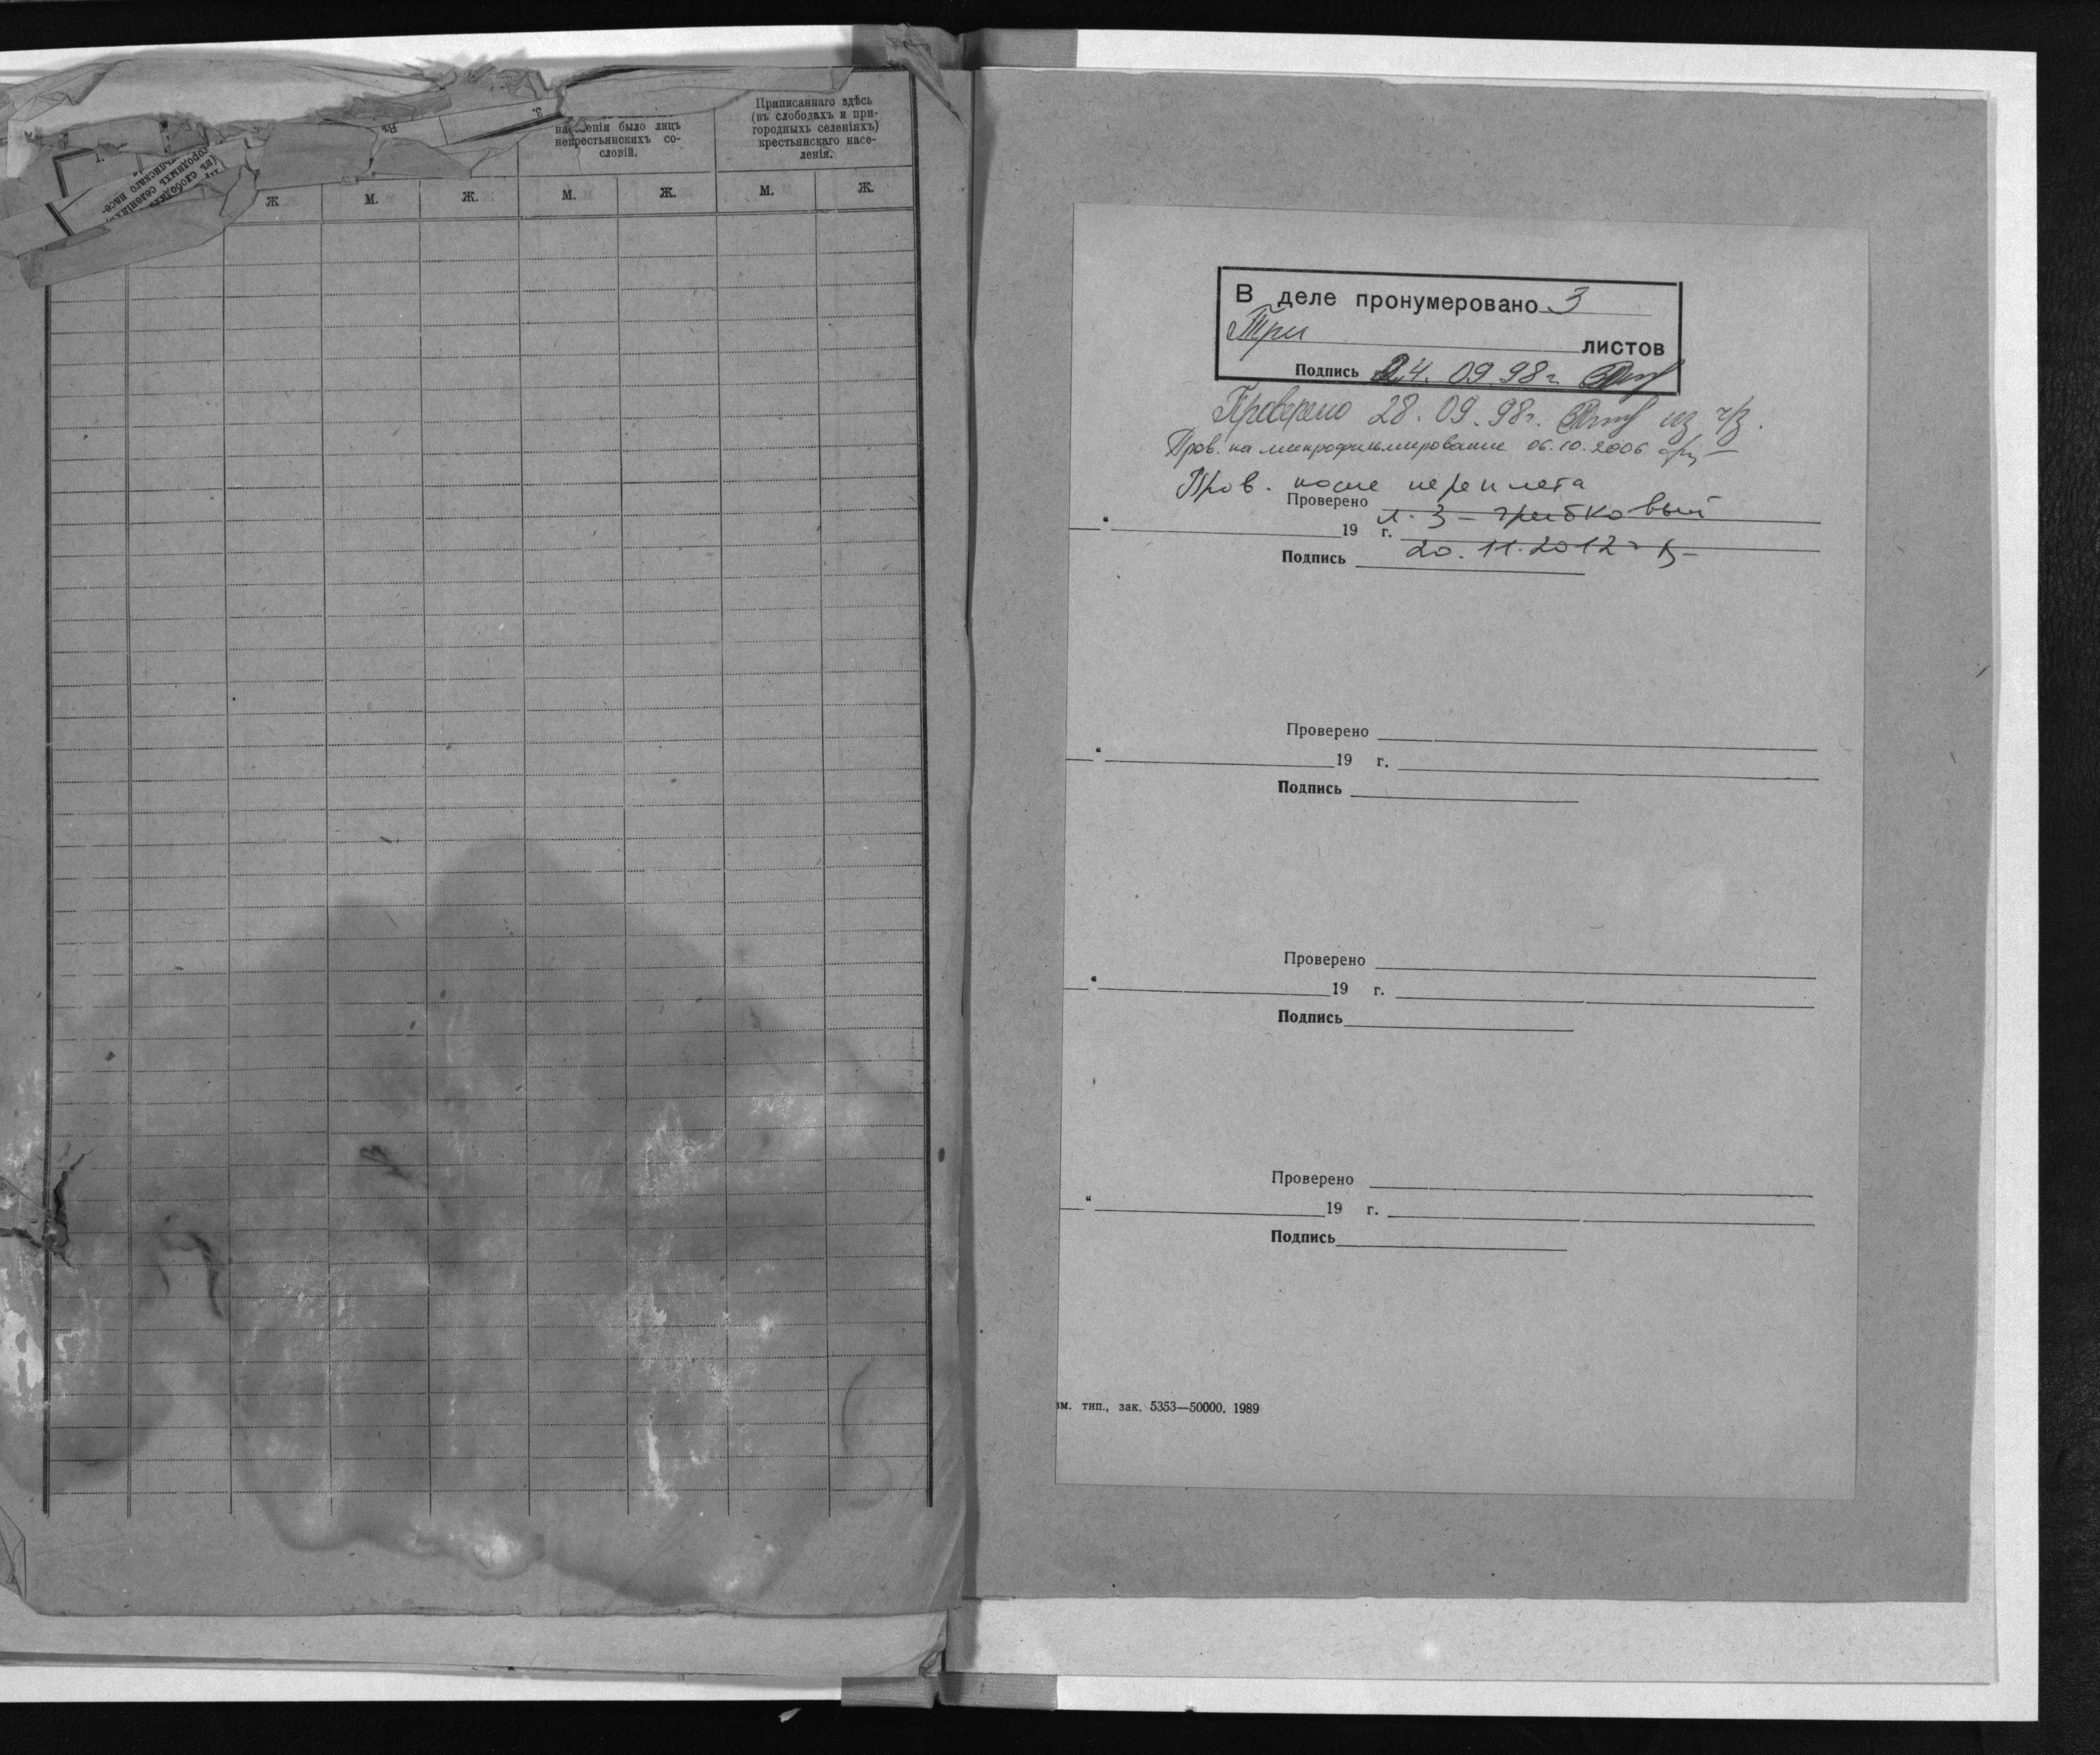 населенія было лицъ
некрестьянскихъ со-
словій.
Приписаннаго здѣсь
(въ слободахъ и при-
городныхъ селеніяхъ)
крестьянскаго насе-
ленія.
Ж М. Ж. М. Ж. М. Ж.
В деле пронумеровано 3
Три листов
Подпись 24. 09 98г.
Проверено 28. 09. 98г. из ч/з.
Пров. на микрофильмирование 06.10.2006
Пров. после переплета
Проверено л. 3 – грибковый
“ 19 г. 20. 11. 2012 г
Подпись
Проверено
“ 19 г.
Подпись
Проверено
“ 19 г.
Подпись
Проверено
“ 19 г.
Подпись
тип., зак. 5353—50000. 1989